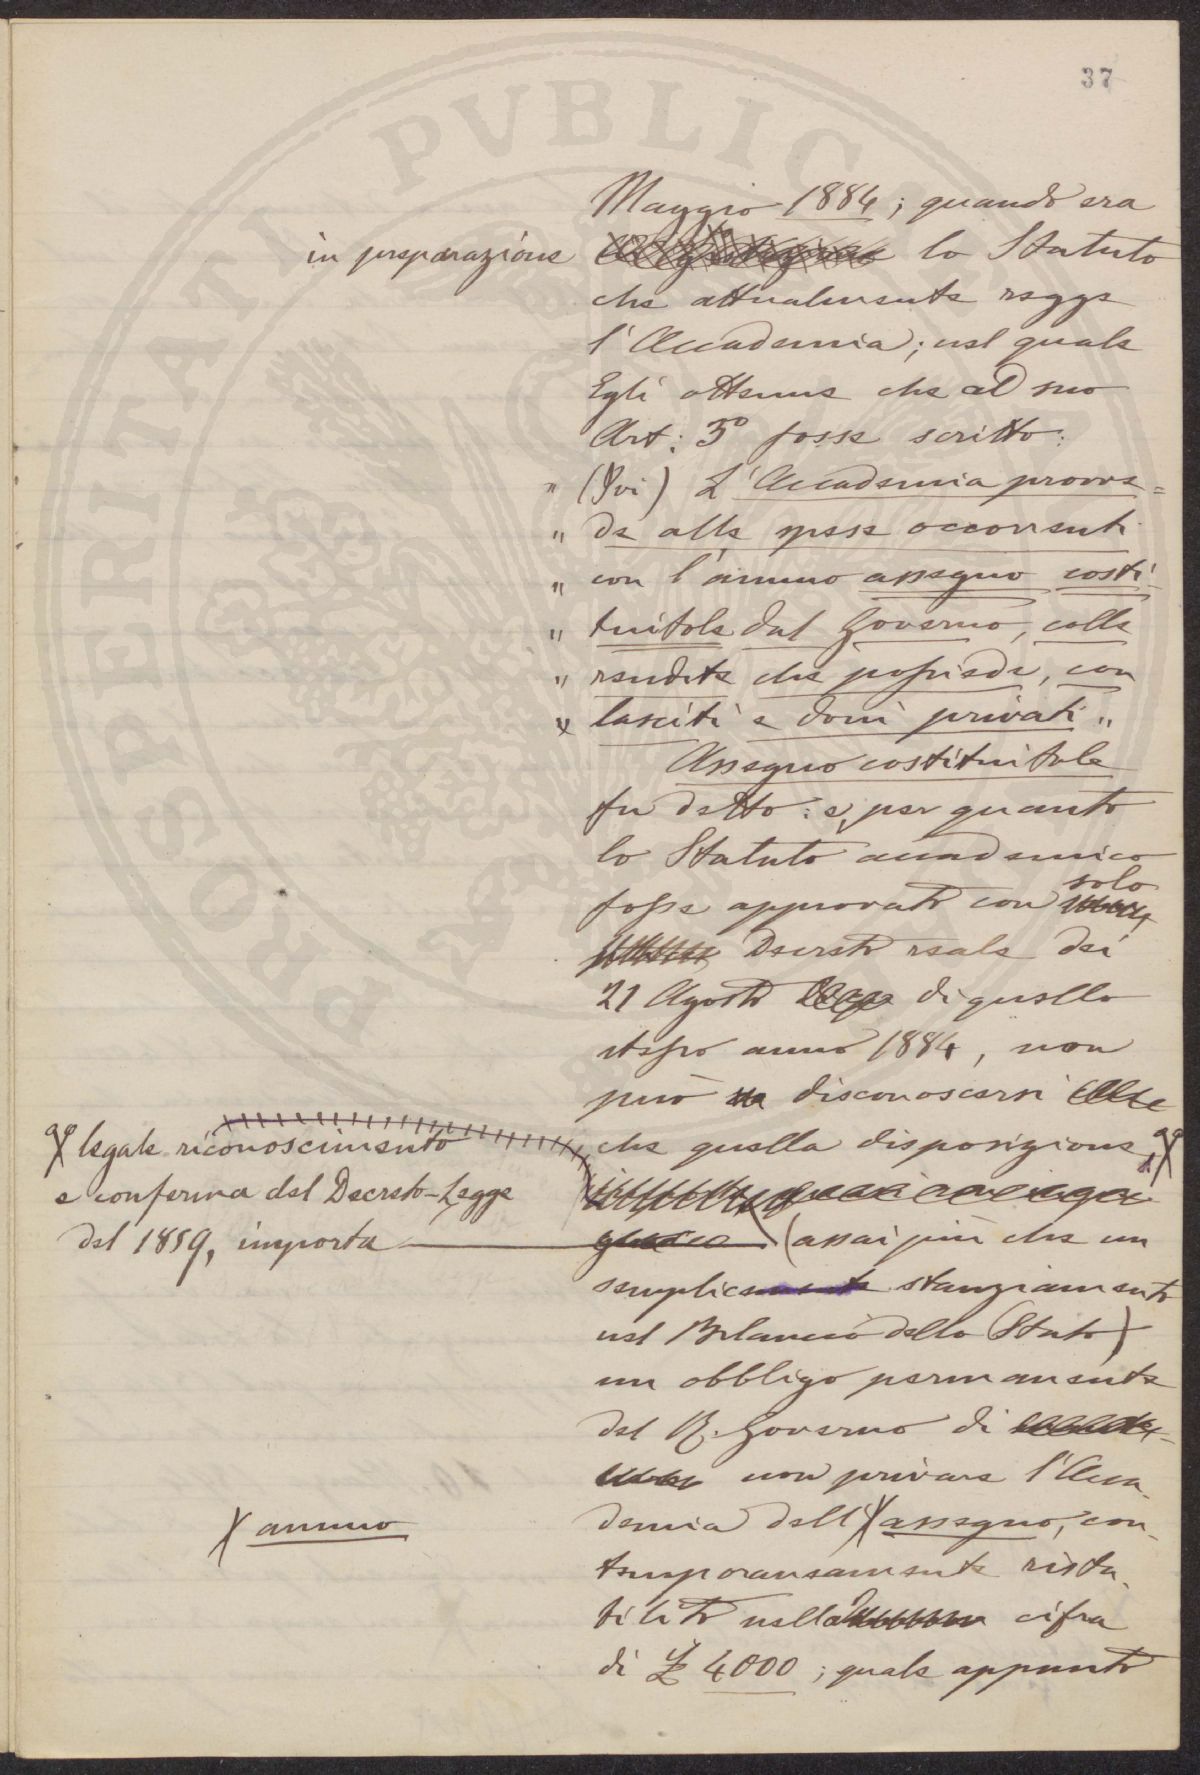 37
Maggio 1884; quando era
in preparazione lo Statuto
che attualmente regge
l'Accademia; nel quale
Egli ottenne che al suo
Art: 3° fosse scritto:
" (Ivi) L'Accademia provve=
" de alle spese occorrenti
" con l'annuo assegno costi-
" tuitole dal Governo, colle
" rendite che possiede, con
" lasciti e doni privati "
Assegno costituitole
fu detto: e, per quanto
lo Statuto accademico
fosse approvato con solo
Decreto reale dei
21 Agosto di quello
stesso anno 1884, non
può disconoscersi
che quella disposizione,
legale riconoscimento
e conferma del Decreto-Legge
del 1859, importa
(assai più che un
semplice stanziamento
nel Bilancio dello Stato)
un obbligo permanente
del R. Governo di
non privare l'Acca-
demia dell' assegno, con-
X annuo
temporaneamente rista-
bilito nella cifra
di £ 4000; quale appunto
PROSPERITATI PVBLICA